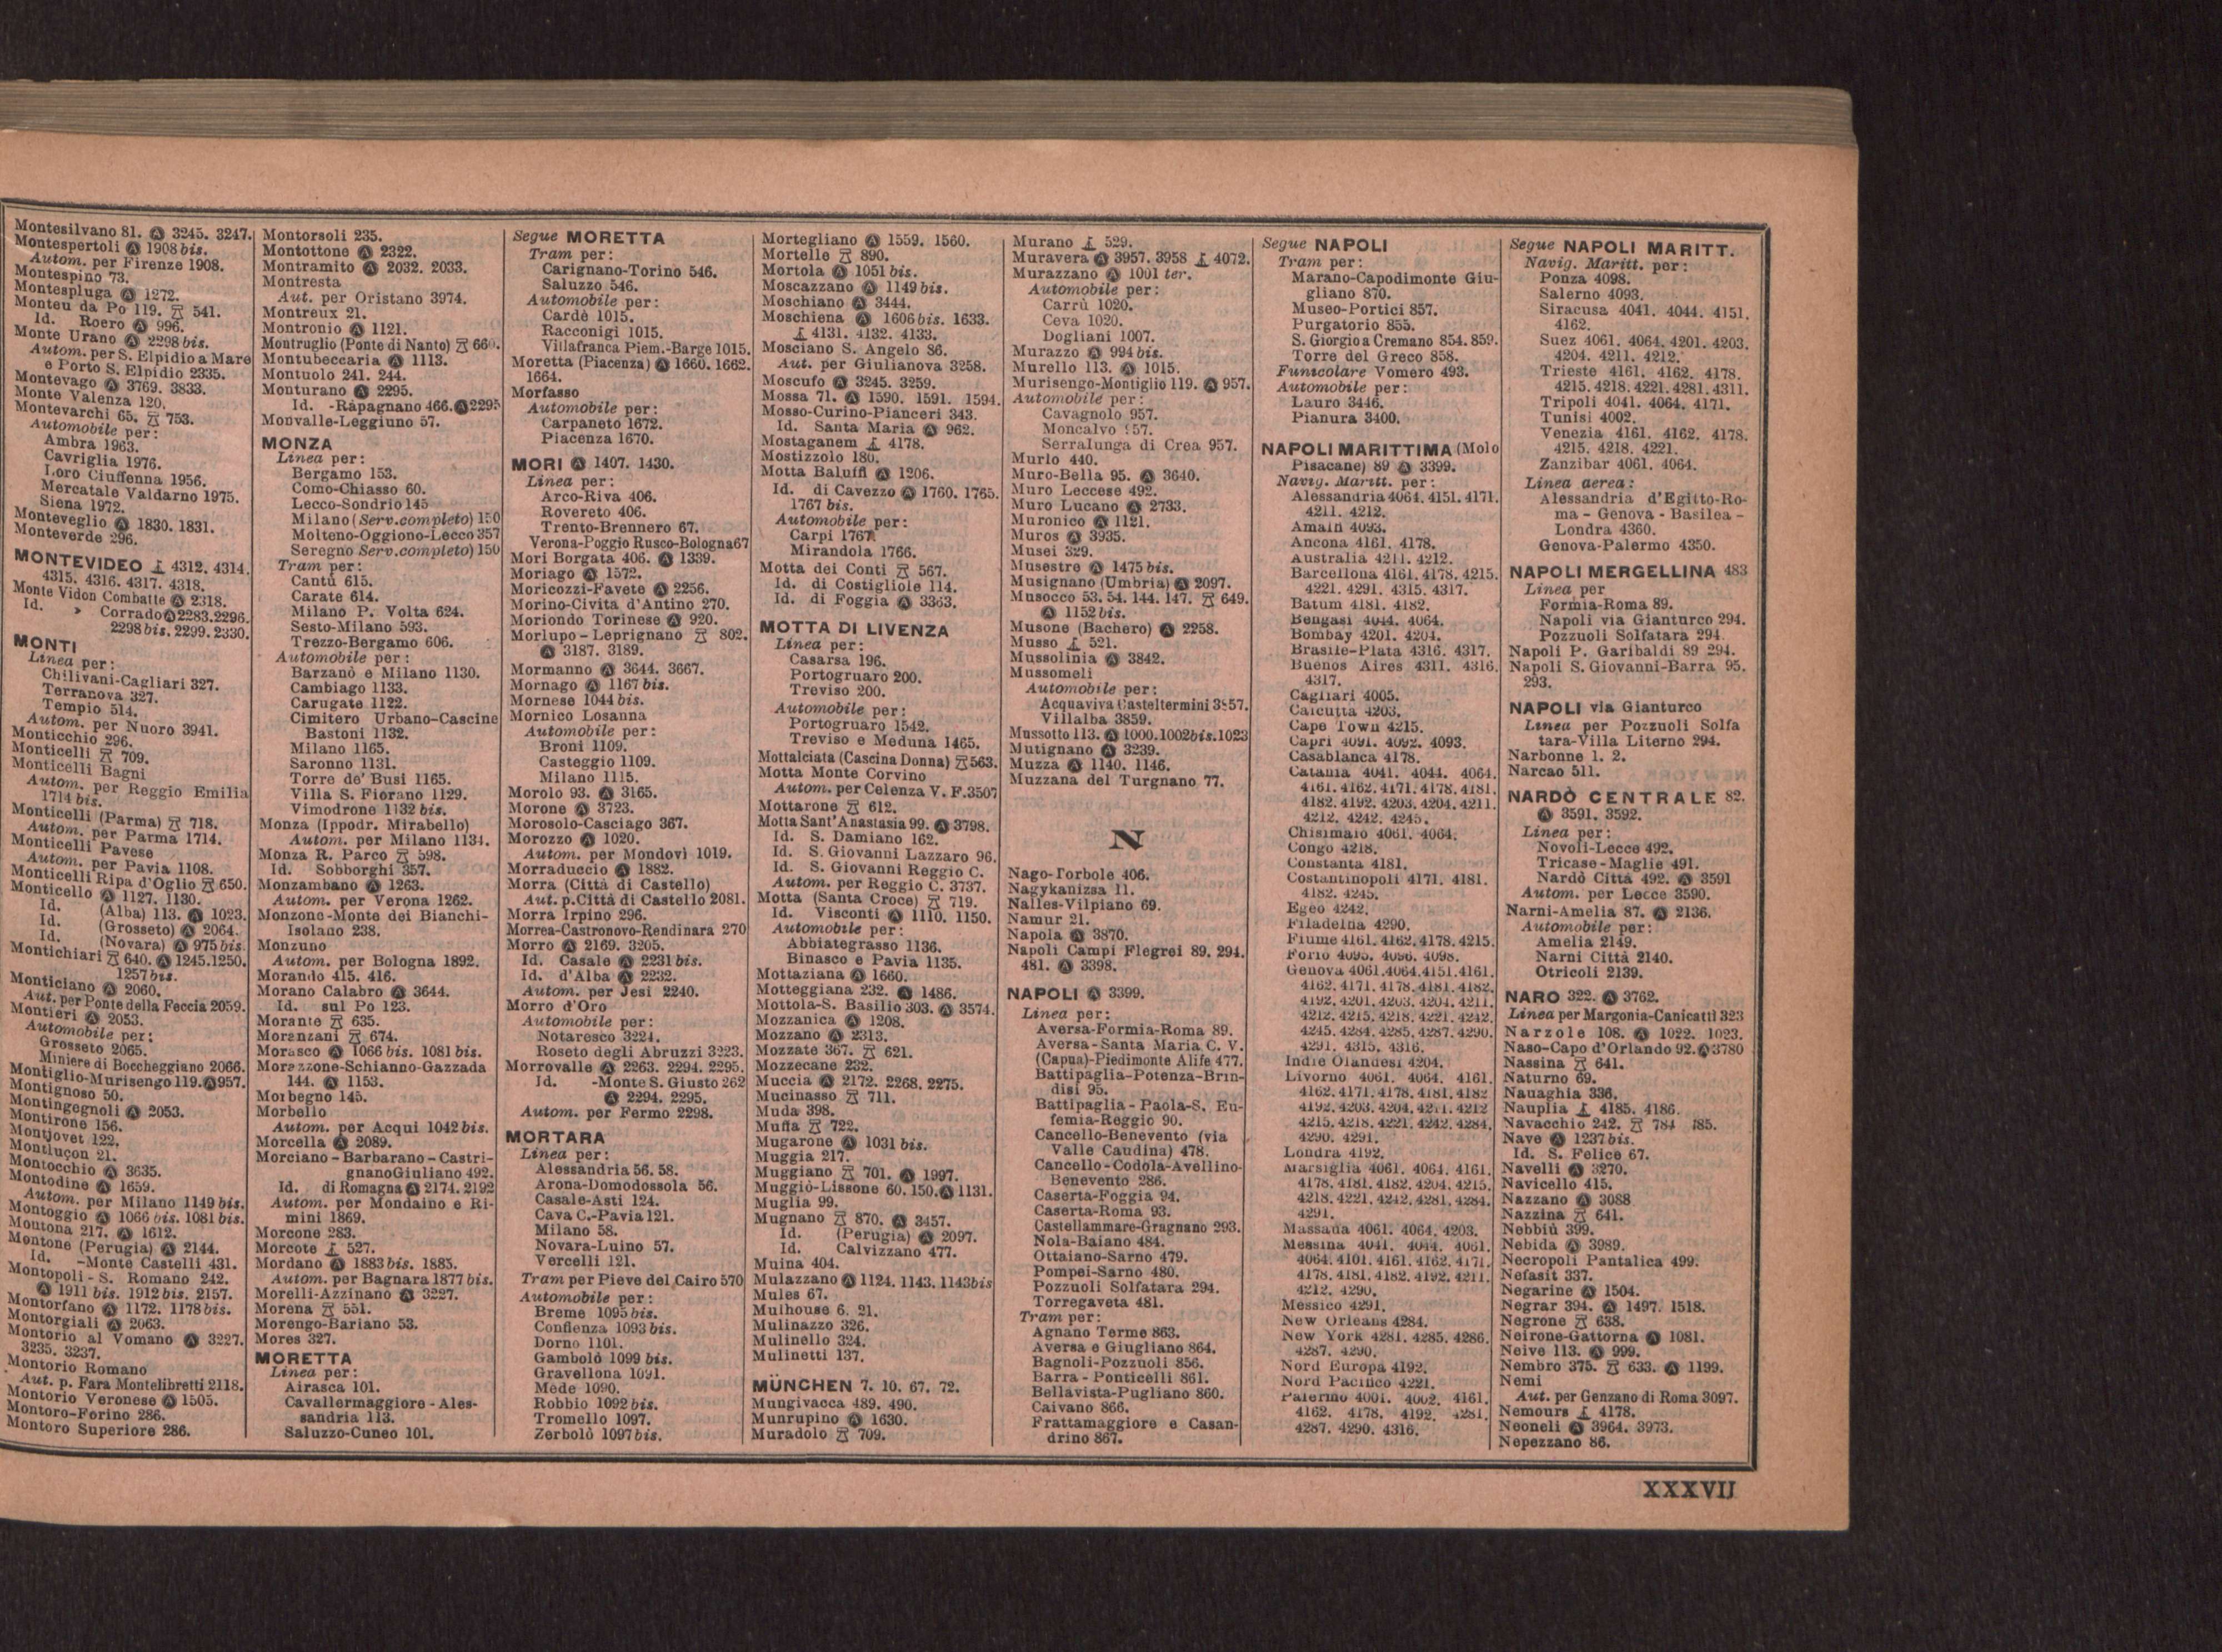 Montesilvano 81. Ⓐ 3245. 3247.
Montespertoli Ⓐ 1908 bis.
Autom. per Firenze 1908.
Montespino 73.
Montespluga Ⓐ 1272.
Monteu da Po 119. 541.
Id. Roero Ⓐ 996.
Monte Urano Ⓐ 2298 bis.
Autom. per S. Elpidio a Mare
e Porto S. Elpidio 2335.
Montevago Ⓐ 3769. 3833.
Monte Valenza 120.
Montevarchi 65. 753.
Automobile per:
Ambra 1963.
Cavriglia 1976.
Loro Ciuffenna 1956.
Mercatale Valdarno 1975.
Siena 1972.
Monteveglio Ⓐ 1830. 1831.
Monteverde 296.
MONTEVIDEO 4312. 4314.
4315. 4316. 4317. 4318.
Monte Vidon Combatte Ⓐ 2318.
Id. » Corrado Ⓐ 2283.2296.
2298 bis. 2299. 2330.
MONTI
Linea per:
Chilivani-Cagliari 327.
Terranova 327.
Tempio 514.
Autom. per Nuoro 3941.
Monticchio 296.
Monticelli 709.
Monticelli Bagni
Autom. per Reggio Emilia
1714 bis.
Monticelli (Parma) 718.
Autom. per Parma 1714.
Monticelli Pavese
Autom. per Pavia 1108.
Monticelli Ripa d'Oglio 650.
Monticello Ⓐ 1127. 1130.
Id. (Alba) 113. Ⓐ 1023.
Id. (Grosseto) Ⓐ 2064.
Id. (Novara) Ⓐ 975 bis.
Montichiari 640. Ⓐ 1245.1250.
1257 bis.
Monticiano Ⓐ 2060.
Aut. per Ponte della Feccia 2059.
Montieri Ⓐ 2053.
Automobile per:
Grosseto 2065.
Miniere di Boccheggiano 2066.
Montiglio-Murisengo 119. Ⓐ 957.
Montignoso 50.
Montingegnoli Ⓐ 2053.
Montirone 156.
Montjovet 122.
Montluçon 21.
Montocchio Ⓐ 3635.
Montodine Ⓐ 1659.
Autom. per Milano 1149 bis.
Montoggio Ⓐ 1066 bis. 1081 bis.
Montona 217. Ⓐ 1612.
Montone (Perugia) Ⓐ 2144.
Id. -Monte Castelli 431.
Montopoli - S. Romano 242.
Ⓐ 1911 bis. 1912 bis. 2157.
Montorfano Ⓐ 1172. 1178 bis.
Montorgiali Ⓐ 2063.
Montorio al Vomano Ⓐ 3227.
3235. 3237.
Montorio Romano
Aut. p. Fara Montelibretti 2118.
Montorio Veronese Ⓐ 1505.
Montoro-Forino 286.
Montoro Superiore 286.
Montorsoli 235.
Montottone Ⓐ 2322.
Montramito Ⓐ 2032. 2033.
Montresta
Aut. per Oristano 3974.
Montreux 21.
Montronio Ⓐ 1121.
Montruglio (Ponte di Nanto) 660.
Montubeccaria Ⓐ 1113.
Montuolo 241. 244.
Monturano Ⓐ 2295.
Id. -Rapagnano 466. Ⓐ 2295
Monvalle-Leggiuno 57.
MONZA
Linea per:
Bergamo 153.
Como-Chiasso 60.
Lecco-Sondrio 145
Milano (Serv. completo) 150
Molteno-Oggiono-Lecco 357
Seregno Serv. completo) 150
Tram per:
Cantù 615.
Carate 614.
Milano P. Volta 624.
Sesto-Milano 593.
Trezzo-Bergamo 606.
Automobile per:
Barzanò e Milano 1130.
Cambiago 1133.
Carugate 1122.
Cimitero Urbano-Cascine
Bastoni 1132.
Milano 1165.
Saronno 1131.
Torre de' Busi 1165.
Villa S. Fiorano 1129.
Vimodrone 1132 bis.
Monza (Ippodr. Mirabello)
Autom. per Milano 1134.
Monza R. Parco 598.
Id. Sobborghi 357.
Monzambano Ⓐ 1263.
Autom. per Verona 1262.
Monzone-Monte dei Bianchi-
Isolano 238.
Monzuno
Autom. per Bologna 1892.
Morando 415. 416.
Morano Calabro Ⓐ 3644.
Id. sul Po 123.
Morante 635.
Moranzani 674.
Morasco Ⓐ 1066 bis. 1081 bis.
Morazzone-Schianno-Gazzada
144. Ⓐ 1153.
Morbegno 145.
Morbello
Autom. per Acqui 1042 bis.
Morcella Ⓐ 2089.
Morciano - Barbarano - Castri-
gnano Giuliano 492.
Id. di Romagna Ⓐ 2174. 2192
Autom. per Mondaino e Ri-
mini 1869.
Morcone 283.
Morcote 527.
Mordano Ⓐ 1883 bis. 1885.
Autom. per Bagnara 1877 bis.
Morelli-Azzinano Ⓐ 3227.
Morena 551.
Morengo-Bariano 53.
Mores 327.
MORETTA
Linea per:
Airasca 101.
Cavallermaggiore - Ales-
sandria 113.
Saluzzo-Cuneo 101.
Segue MORETTA
Tram per:
Carignano-Torino 546.
Saluzzo 546.
Automobile per:
Cardè 1015.
Racconigi 1015.
Villafranca Piem.-Barge 1015.
Moretta (Piacenza) Ⓐ 1660. 1662.
1664.
Morfasso
Automobile per:
Carpaneto 1672.
Piacenza 1670.
MORI Ⓐ 1407. 1430.
Linea per:
Arco-Riva 406.
Rovereto 406.
Trento-Brennero 67.
Verona-Poggio Rusco-Bologna 67
Mori Borgata 406. Ⓐ 1339.
Moriago Ⓐ 1572.
Moricozzi-Favete Ⓐ 2256.
Morino-Civita d'Antino 270.
Moriondo Torinese Ⓐ 920.
Morlupo - Leprignano 802.
Ⓐ 3187. 3189.
Mormanno Ⓐ 3644. 3667.
Mornago Ⓐ 1167 bis.
Mornese 1044 bis.
Mornico Losanna
Automobile per:
Broni 1109.
Casteggio 1109.
Milano 1115.
Morolo 93. Ⓐ 3165.
Morone Ⓐ 3723.
Morosolo-Casciago 367.
Morozzo Ⓐ 1020.
Autom. per Mondovì 1019.
Morraduccio Ⓐ 1882.
Morra (Città di Castello)
Aut. p. Città di Castello 2081.
Morra Irpino 296.
Morrea-Castronovo-Rendinara 270
Morro Ⓐ 2169. 3205.
Id. Casale Ⓐ 2231 bis.
Id. d'Alba Ⓐ 2232.
Autom. per Jesi 2240.
Morro d'Oro
Automobile per:
Notaresco 3224.
Roseto degli Abruzzi 3223.
Morrovalle Ⓐ 2263. 2294. 2295.
Id. -Monte S. Giusto 262
Ⓐ 2294. 2295.
Autom. per Fermo 2298.
MORTARA
Linea per:
Alessandria 56. 58.
Arona-Domodossola 56.
Casale-Asti 124.
Cava C.-Pavia 121.
Milano 58.
Novara-Luino 57.
Vercelli 121.
Tram per Pieve del Cairo 570
Automobile per:
Breme 1095 bis.
Confienza 1093 bis.
Dorno 1101.
Gambolò 1099 bis.
Gravellona 1091.
Mede 1090.
Robbio 1092 bis.
Tromello 1097.
Zerbolò 1097 bis.
Mortegliano Ⓐ 1559. 1560.
Mortelle 890.
Mortola Ⓐ 1051 bis.
Moscazzano Ⓐ 1149 bis.
Moschiano Ⓐ 3444.
Moschiena Ⓐ 1606 bis. 1633.
4131. 4132. 4133.
Mosciano S. Angelo 86.
Aut. per Giulianova 3258.
Moscufo Ⓐ 3245. 3259.
Mossa 71. Ⓐ 1590. 1591. 1594.
Mosso-Curino-Pianceri 343.
Id. Santa Maria Ⓐ 962.
Mostaganem 4178.
Mostizzolo 180.
Motta Baluffi Ⓐ 1206.
Id. di Cavezzo Ⓐ 1760. 1765.
1767 bis.
Automobile per:
Carpi 1767.
Mirandola 1766.
Motta dei Conti 567.
Id. di Costigliole 114.
Id. di Foggia Ⓐ 3363.
MOTTA DI LIVENZA
Linea per:
Casarsa 196.
Portogruaro 200.
Treviso 200.
Automobile per:
Portogruaro 1542.
Treviso e Meduna 1465.
Mottalciata (Cascina Donna) 563.
Motta Monte Corvino
Autom. per Celenza V. F. 3507
Mottarone 612.
Motta Sant'Anastasia 99. Ⓐ 3798.
Id. S. Damiano 162.
Id. S. Giovanni Lazzaro 96.
Id. S. Giovanni Reggio C.
Autom. per Reggio C. 3737.
Motta (Santa Croce) 719.
Id. Visconti Ⓐ 1110. 1150.
Automobile per:
Abbiategrasso 1136.
Binasco e Pavia 1135.
Mottaziana Ⓐ 1660.
Motteggiana 232. Ⓐ 1486.
Mottola-S. Basilio 303. Ⓐ 3574.
Mozzanica Ⓐ 1208.
Mozzano Ⓐ 2313.
Mozzate 367. 621.
Mozzecane 232.
Muccia Ⓐ 2172. 2268. 2275.
Mucinasso 711.
Muda 398.
Muffa 722.
Mugarone Ⓐ 1031 bis.
Muggia 217.
Muggiano 701. Ⓐ 1997.
Muggiò-Lissone 60. 150. Ⓐ 1131.
Muglia 99.
Mugnano 870. Ⓐ 3457.
Id. (Perugia) Ⓐ 2097.
Id. Calvizzano 477.
Muina 404.
Mulazzano Ⓐ 1124. 1143. 1143bis
Mules 67.
Mulhouse 6. 21.
Mulinazzo 326.
Mulinello 324.
Mulinetti 137.
MÜNCHEN 7. 10. 67. 72.
Mungivacca 489. 490.
Munrupino Ⓐ 1630.
Muradolo 709.
Murano 529.
Muravera Ⓐ 3957. 3958 4072.
Murazzano Ⓐ 1001 ter.
Automobile per:
Carrù 1020.
Ceva 1020.
Dogliani 1007.
Murazzo Ⓐ 994 bis.
Murello 113. Ⓐ 1015.
Murisengo-Montiglio 119. Ⓐ 957.
Automobile per:
Cavagnolo 957.
Moncalvo 957.
Serralunga di Crea 957.
Murlo 440.
Muro-Bella 95. Ⓐ 3640.
Muro Leccese 492.
Muro Lucano Ⓐ 2733.
Muronico Ⓐ 1121.
Muros Ⓐ 3935.
Musei 329.
Musestre Ⓐ 1475 bis.
Musignano (Umbria) Ⓐ 2097.
Musocco 53. 54. 144. 147. 649.
Ⓐ 1152 bis.
Musone (Bachero) Ⓐ 2258.
Musso 521.
Mussolinia Ⓐ 3842.
Mussomeli
Automobile per:
Acquaviva Casteltermini 3857.
Villalba 3859.
Mussotto 113. Ⓐ 1000.1002bis.1023
Mutignano Ⓐ 3239.
Muzza Ⓐ 1140. 1146.
Muzzana del Turgnano 77.
N
Nago-Torbole 406.
Nagykanizsa 11.
Nalles-Vilpiano 69.
Namur 21.
Napola Ⓐ 3870.
Napoli Campi Flegrei 89. 294.
481. Ⓐ 3398.
NAPOLI Ⓐ 3399.
Linea per:
Aversa-Formia-Roma 89.
Aversa-Santa Maria C. V.
(Capua)-Piedimonte Alife 477.
Battipaglia-Potenza-Brin-
disi 95.
Battipaglia - Paola-S. Eu-
femia-Reggio 90.
Cancello-Benevento (via
Valle Caudina) 478.
Cancello-Codola-Avellino-
Benevento 286.
Caserta-Foggia 94.
Caserta-Roma 93.
Castellammare-Gragnano 293.
Nola-Baiano 484.
Ottaiano-Sarno 479.
Pompei-Sarno 480.
Pozzuoli Solfatara 294.
Torregaveta 481.
Tram per:
Agnano Terme 863.
Aversa e Giugliano 864.
Bagnoli-Pozzuoli 856.
Barra - Ponticelli 861.
Bellavista-Pugliano 860.
Caivano 866.
Frattamaggiore e Casan-
drino 867.
Segue NAPOLI
Tram per:
Marano-Capodimonte Giu-
gliano 870.
Museo-Portici 857.
Purgatorio 855.
S. Giorgio a Cremano 854. 859.
Torre del Greco 858.
Funicolare Vomero 493.
Automobile per:
Lauro 3446.
Pianura 3400.
NAPOLI MARITTIMA (Molo
Pisacane) 89 Ⓐ 3399.
Navig. Maritt. per:
Alessandria 4064. 4151. 4171.
4211. 4212.
Amalfi 4093.
Ancona 4161. 4178.
Australia 4211. 4212.
Barcellona 4161. 4178. 4215.
4221. 4291. 4315. 4317.
Batum 4181. 4182.
Bengasi 4044. 4064.
Bombay 4201. 4204.
Brasile-Plata 4316. 4317.
Buenos Aires 4311. 4316.
4317.
Cagliari 4005.
Calcutta 4203.
Cape Town 4215.
Capri 4091. 4092. 4093.
Casablanca 4178.
Catania 4041. 4044. 4064.
4161. 4162. 4171. 4178. 4181.
4182. 4192. 4203. 4204. 4211.
4212. 4242. 4245.
Chisimaio 4061. 4064.
Congo 4218.
Constanta 4181.
Costantinopoli 4171. 4181.
4182. 4245.
Egeo 4242.
Filadelfia 4290.
Fiume 4161. 4162. 4178. 4215.
Forio 4095. 4096. 4098.
Genova 4061.4064.4151.4161.
4162. 4171. 4178. 4181. 4182.
4192. 4201. 4203. 4204. 4211.
4212. 4215. 4218. 4221. 4242.
4245. 4284. 4285. 4287. 4290.
4291. 4315. 4316.
Indie Olandesi 4204.
Livorno 4061. 4064. 4161.
4162. 4171. 4178. 4181. 4182
4192. 4203. 4204. 4211. 4212
4215. 4218. 4221. 4242. 4284.
4290. 4291.
Londra 4192.
Marsiglia 4061. 4064. 4161.
4178. 4181. 4182. 4204. 4215.
4218. 4221. 4242. 4281. 4284.
4291.
Massaua 4061. 4064. 4203.
Messina 4041. 4044. 4061.
4064. 4101. 4161. 4162. 4171.
4178. 4181. 4182. 4192. 4211.
4212. 4290.
Messico 4291.
New Orleans 4284.
New York 4281. 4285. 4286.
4287. 4290.
Nord Europa 4192.
Nord Pacifico 4221.
Palermo 4001. 4002. 4161.
4162. 4178. 4192. 4281.
4287. 4290. 4316.
Segue NAPOLI MARITT.
Navig. Maritt. per:
Ponza 4098.
Salerno 4093.
Siracusa 4041. 4044. 4151.
4162.
Suez 4061. 4064. 4201. 4203.
4204. 4211. 4212.
Trieste 4161. 4162. 4178.
4215. 4218. 4221. 4281. 4311.
Tripoli 4041. 4064. 4171.
Tunisi 4002.
Venezia 4161. 4162. 4178.
4215. 4218. 4221.
Zanzibar 4061. 4064.
Linea aerea:
Alessandria d'Egitto-Ro-
ma - Genova - Basilea -
Londra 4360.
Genova-Palermo 4350.
NAPOLI MERGELLINA 483
Linea per
Formia-Roma 89.
Napoli via Gianturco 294.
Pozzuoli Solfatara 294.
Napoli P. Garibaldi 89 294.
Napoli S. Giovanni-Barra 95.
293.
NAPOLI via Gianturco
Linea per Pozzuoli Solfa
tara-Villa Literno 294.
Narbonne 1. 2.
Narcao 511.
NARDÒ CENTRALE 82.
Ⓐ 3591. 3592.
Linea per:
Novoli-Lecce 492.
Tricase-Maglie 491.
Nardò Città 492. Ⓐ 3591
Autom. per Lecce 3590.
Narni-Amelia 87. Ⓐ 2136.
Automobile per:
Amelia 2149.
Narni Città 2140.
Otricoli 2139.
NARO 322. Ⓐ 3762.
Linea per Margonia-Canicattì 323
Narzole 108. Ⓐ 1022. 1023.
Naso-Capo d'Orlando 92. Ⓐ 3780
Nassina 641.
Naturno 69.
Nauaghia 336.
Nauplia 4185. 4186.
Navacchio 242. 784 785.
Nave Ⓐ 1237 bis.
Id. S. Felice 67.
Navelli Ⓐ 3270.
Navicello 415.
Nazzano Ⓐ 3088
Nazzina 641.
Nebbiù 399.
Nebida Ⓐ 3989.
Necropoli Pantalica 499.
Nefasit 337.
Negarine Ⓐ 1504.
Negrar 394. Ⓐ 1497. 1518.
Negrone 638.
Neirone-Gattorna Ⓐ 1081.
Neive 113. Ⓐ 999.
Nembro 375. 633. Ⓐ 1199.
Nemi
Aut. per Genzano di Roma 3097.
Nemours 4178.
Neoneli Ⓐ 3964. 3973.
Nepezzano 86.
XXXVII